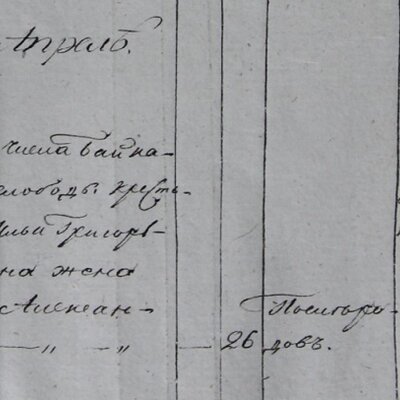 Апрель.
числа Байка-
слободы кресть-
Илья Григорь-
на жена
Алексан-
— „ — „ — 26
Посигоро-
довъ.